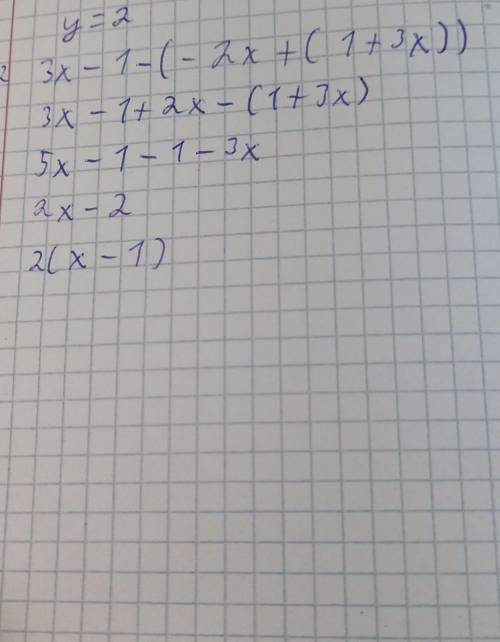 y = 2
2 3x - 1 - (- 2x + ( 1 + 3x))
3x - 1 + 2x - (1 + 3x)
5x - 1 - 1 - 3x
2x - 2
2(x - 1)